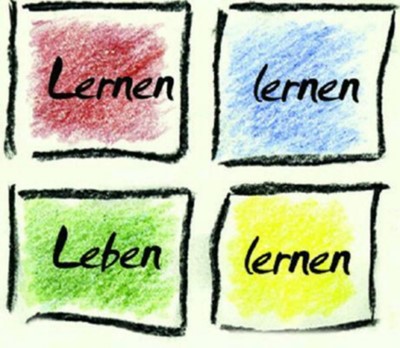 Lernen lernen
Leben lernen